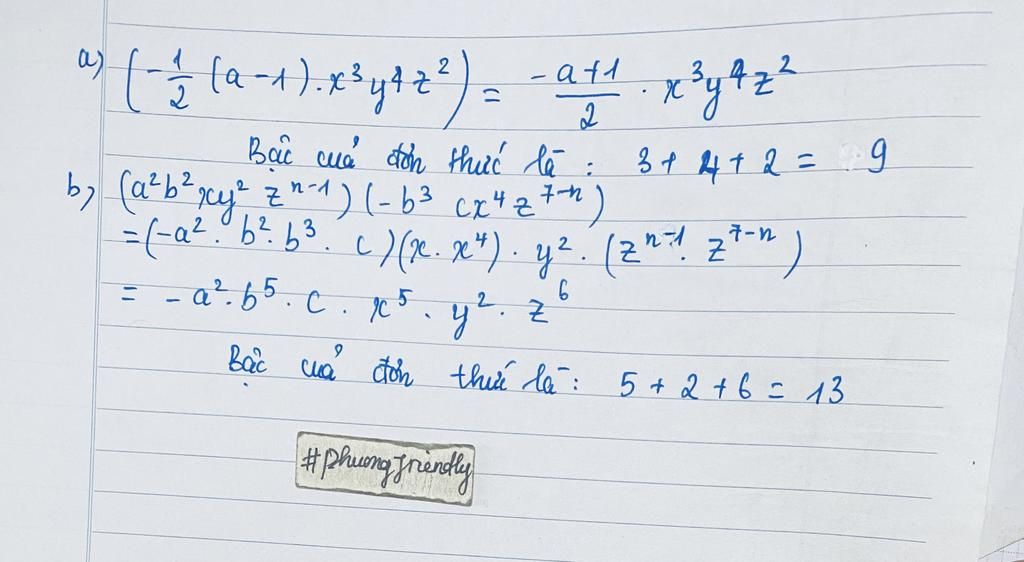 a) (-1/2 (a-1).x³y⁴z²) = -a+1/2 . x³y⁴z²
Bậc cuả đơn thức là : 3 + 4 + 2 = 9
b) (a²b²xy² zⁿ⁻¹)(-b³ cx⁴z⁷⁻ⁿ)
=(-a². b².b³ . c)(x.x⁴). y² . (zⁿ⁻¹. z⁷⁻ⁿ)
= -a².b⁵. c . x⁵. y². z⁶
Bậc cuả đơn thức là: 5 + 2 + 6 = 13
#phuongfriendly